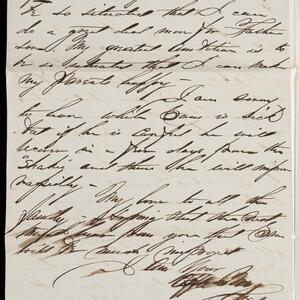 be so situated that I can
do a great deal more for Father
some. My greatest ambition is to
be so situated that I can make
my parents happy —
I am sorry
to hear which Sam is sick
but if he is careful he will
recover in a few days from the
"shakes" and then he will improve
rapidly —
My love to all the
family — hoping that this
you that Sam
will be much improved
I am Your